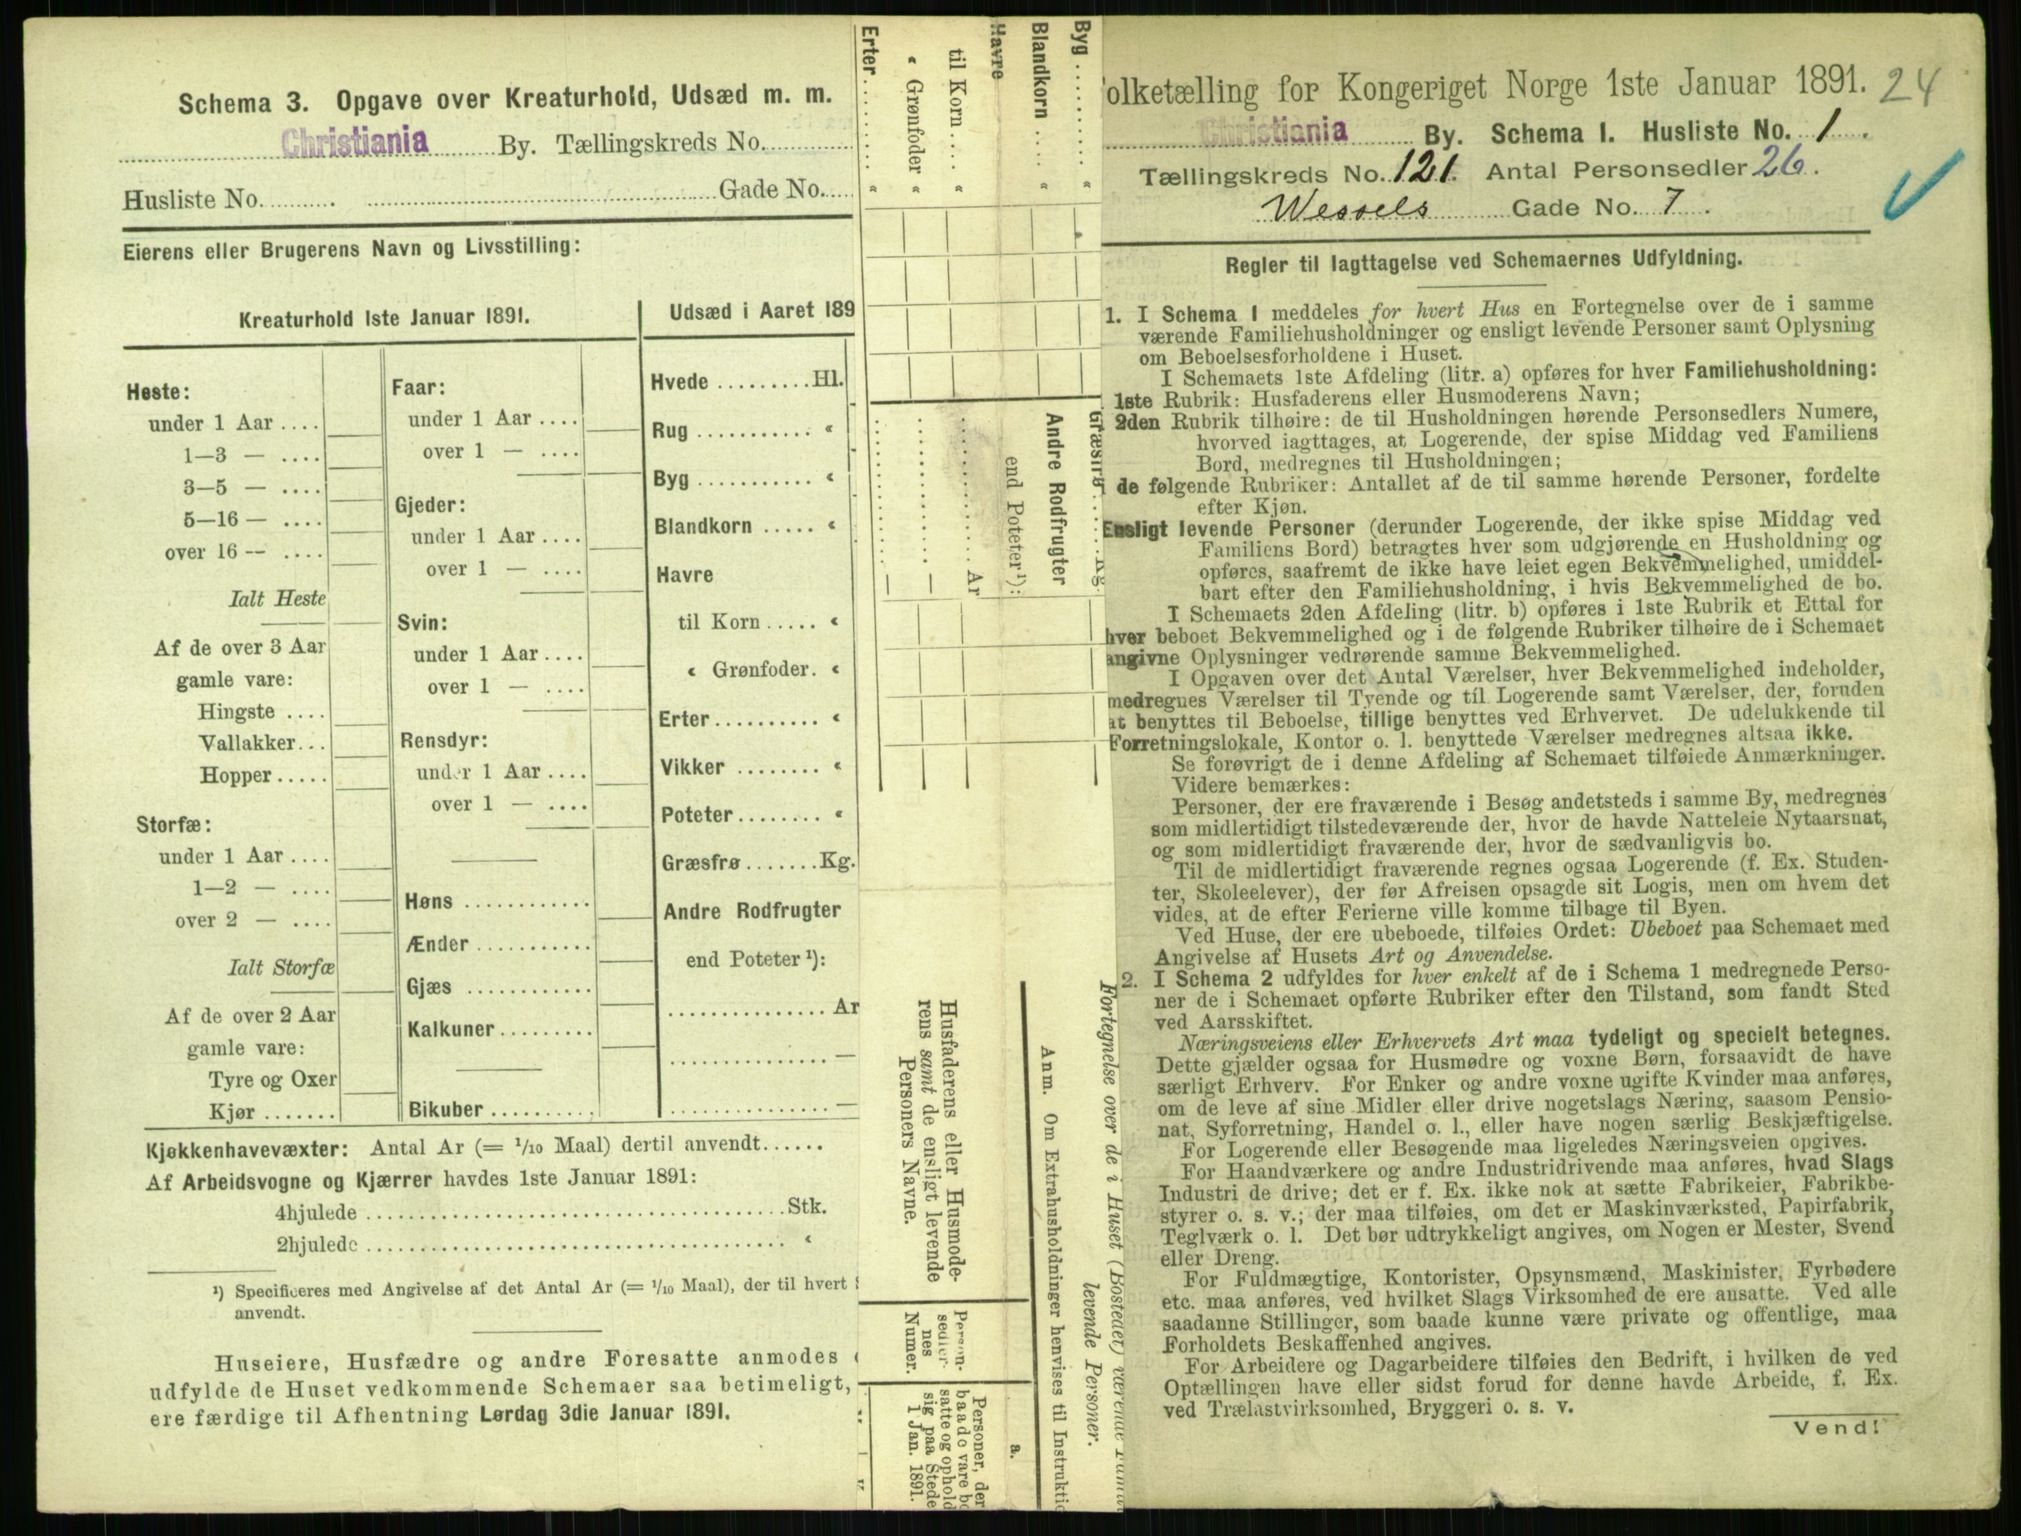 Schema 3. Opgave over Kreaturhold, Udsæd m. m.
Christiania By. Tællingskreds No.
Husliste No. Gade No.
Eierens eller Brugerens Navn og Livsstilling:
Kreaturhold 1ste Januar 1891.
Heste:
under 1 Aar ....
1—3 — ....
3—5 — ....
5—16 — ....
over 16 — ....
Ialt Heste
Af de over 3 Aar
gamle vare:
Hingste ....
Vallakker...
Hopper .....
Storfæ:
under 1 Aar ....
1—2 — ....
over 2 — ....
Ialt Storfæ
Af de over 2 Aar
gamle vare:
Tyre og Oxer
Kjør .......
Faar:
under 1 Aar ....
over 1 — ....
Gjeder:
under 1 Aar ....
over 1 — ....
Svin:
under 1 Aar ....
over 1 — ....
Rensdyr:
under 1 Aar ....
over 1 — ....
Høns ............
Ænder ...........
Gjæs ............
Kalkuner .........
Bikuber ..........
Udsæd i Aaret 189
Hvede .........Hl.
Rug ........... «
Byg ........... «
Blandkorn ..... «
Havre
til Korn ..... «
« Grønfoder. «
Erter .......... «
Vikker ........ «
Poteter ........ «
Græsfrø .......Kg.
Andre Rodfrugter
end Poteter ¹):
............... Ar
............... —
............... —
Kjøkkenhavevæxter: Antal Ar (= 1/10 Maal) dertil anvendt......
Af Arbeidsvogne og Kjærrer havdes 1ste Januar 1891:
4hjulede ........ Stk.
2hjulede ........ «
¹) Specificeres med Angivelse af det Antal Ar (= 1/10 Maal), der til hvert
anvendt.
Huseiere, Husfædre og andre Foresatte anmodes
udfylde de Huset vedkommende Schemaer saa betimeligt,
ere færdige til Afhentning Lørdag 3die Januar 1891.
Byg ........ «
Blandkorn .... «
Havre
til Korn .... «
« Grønfoder «
Erter ........ «
Græsfrø ...... Kg.
Andre Rodfrugter
end Poteter ¹):
............ Ar
............ —
............ —
Fortegnelse over de i Huset (Bostedet) værende
levende Personer.
Anm. Om Extrahusholdninger henvises til
Husfaderens eller Husmode-
rens samt de ensligt levende
Personers Navne.
Person-
sedler-
nes
Numer.
a.
Personer, der
baade vare bo
satte og ophold
sig paa Stede
1 Jan. 1891.
Folketælling for Kongeriget Norge 1ste Januar 1891. 24
Christiania By. Schema 1. Husliste No. 1.
Tællingskreds No. 121. Antal Personsedler 26.
Wessels Gade No. 7.
Regler til Iagttagelse ved Schemaernes Udfyldning.
1. I Schema 1 meddeles for hvert Hus en Fortegnelse over de i samme
værende Familiehusholdninger og ensligt levende Personer samt Oplysning
om Beboelsesforholdene i Huset.
I Schemaets 1ste Afdeling (litr. a) opføres for hver Familiehusholdning:
1ste Rubrik: Husfaderens eller Husmoderens Navn;
2den Rubrik tilhøire: de til Husholdningen hørende Personsedlers Numere,
hvorved iagttages, at Logerende, der spise Middag ved Familiens
Bord, medregnes til Husholdningen;
i de følgende Rubriker: Antallet af de til samme hørende Personer, fordelte
efter Kjøn.
Ensligt levende Personer (derunder Logerende, der ikke spise Middag ved
Familiens Bord) betragtes hver som udgjørende en Husholdning og
opføres, saafremt de ikke have leiet egen Bekvemmelighed, umiddel-
bart efter den Familiehusholdning, i hvis Bekvemmelighed de bo.
I Schemaets 2den Afdeling (litr. b) opføres i 1ste Rubrik et Ettal for
hver beboet Bekvemmelighed og i de følgende Rubriker tilhøire de i Schemaet
angivne Oplysninger vedrørende samme Bekvemmelighed.
I Opgaven over det Antal Værelser, hver Bekvemmelighed indeholder,
medregnes Værelser til Tyende og til Logerende samt Værelser, der, foruden
at benyttes til Beboelse, tillige benyttes ved Erhvervet. De udelukkende til
Forretningslokale, Kontor o. l. benyttede Værelser medregnes altsaa ikke.
Se forøvrigt de i denne Afdeling af Schemaet tilføiede Anmærkninger.
Videre bemærkes:
Personer, der ere fraværende i Besøg andetsteds i samme By, medregnes
som midlertidigt tilstedeværende der, hvor de havde Natteleie Nytaarsnat,
og som midlertidigt fraværende der, hvor de sædvanligvis bo.
Til de midlertidigt fraværende regnes ogsaa Logerende (f. Ex. Studen-
ter, Skoleelever), der før Afreisen opsagde sit Logis, men om hvem det
vides, at de efter Ferierne ville komme tilbage til Byen.
Ved Huse, der ere ubeboede, tilføies Ordet: Ubeboet paa Schemaet med
Angivelse af Husets Art og Anvendelse.
2. I Schema 2 udfyldes for hver enkelt af de i Schema 1 medregnede Perso-
ner de i Schemaet opførte Rubriker efter den Tilstand, som fandt Sted
ved Aarsskiftet.
Næringsveiens eller Erhvervets Art maa tydeligt og specielt betegnes.
Dette gjælder ogsaa for Husmødre og voxne Børn, forsaavidt de have
særligt Erhverv. For Enker og andre voxne ugifte Kvinder maa anføres,
om de leve af sine Midler eller drive nogetslags Næring, saasom Pensio-
nat, Syforretning, Handel o. l., eller have nogen særlig Beskjæftigelse.
For Logerende eller Besøgende maa ligeledes Næringsveien opgives.
For Haandværkere og andre Industridrivende maa anføres, hvad Slags
Industri de drive; det er f. Ex. ikke nok at sætte Fabrikeier, Fabrikbe-
styrer o. s. v.; der maa tilføies, om det er Maskinværksted, Papirfabrik,
Teglværk o. l. Det bør udtrykkeligt angives, om Nogen er Mester, Svend
eller Dreng.
For Fuldmægtige, Kontorister, Opsynsmænd, Maskinister, Fyrbødere
etc. maa anføres, ved hvilket Slags Virksomhed de ere ansatte. Ved alle
saadanne Stillinger, som baade kunne være private og offentlige, maa
Forholdets Beskaffenhed angives.
For Arbeidere og Dagarbeidere tilføies den Bedrift, i hvilken de ved
Optællingen have eller sidst forud for denne havde Arbeide, f. Ex.
ved Trælastvirksomhed, Bryggeri o. s. v.
Vend!